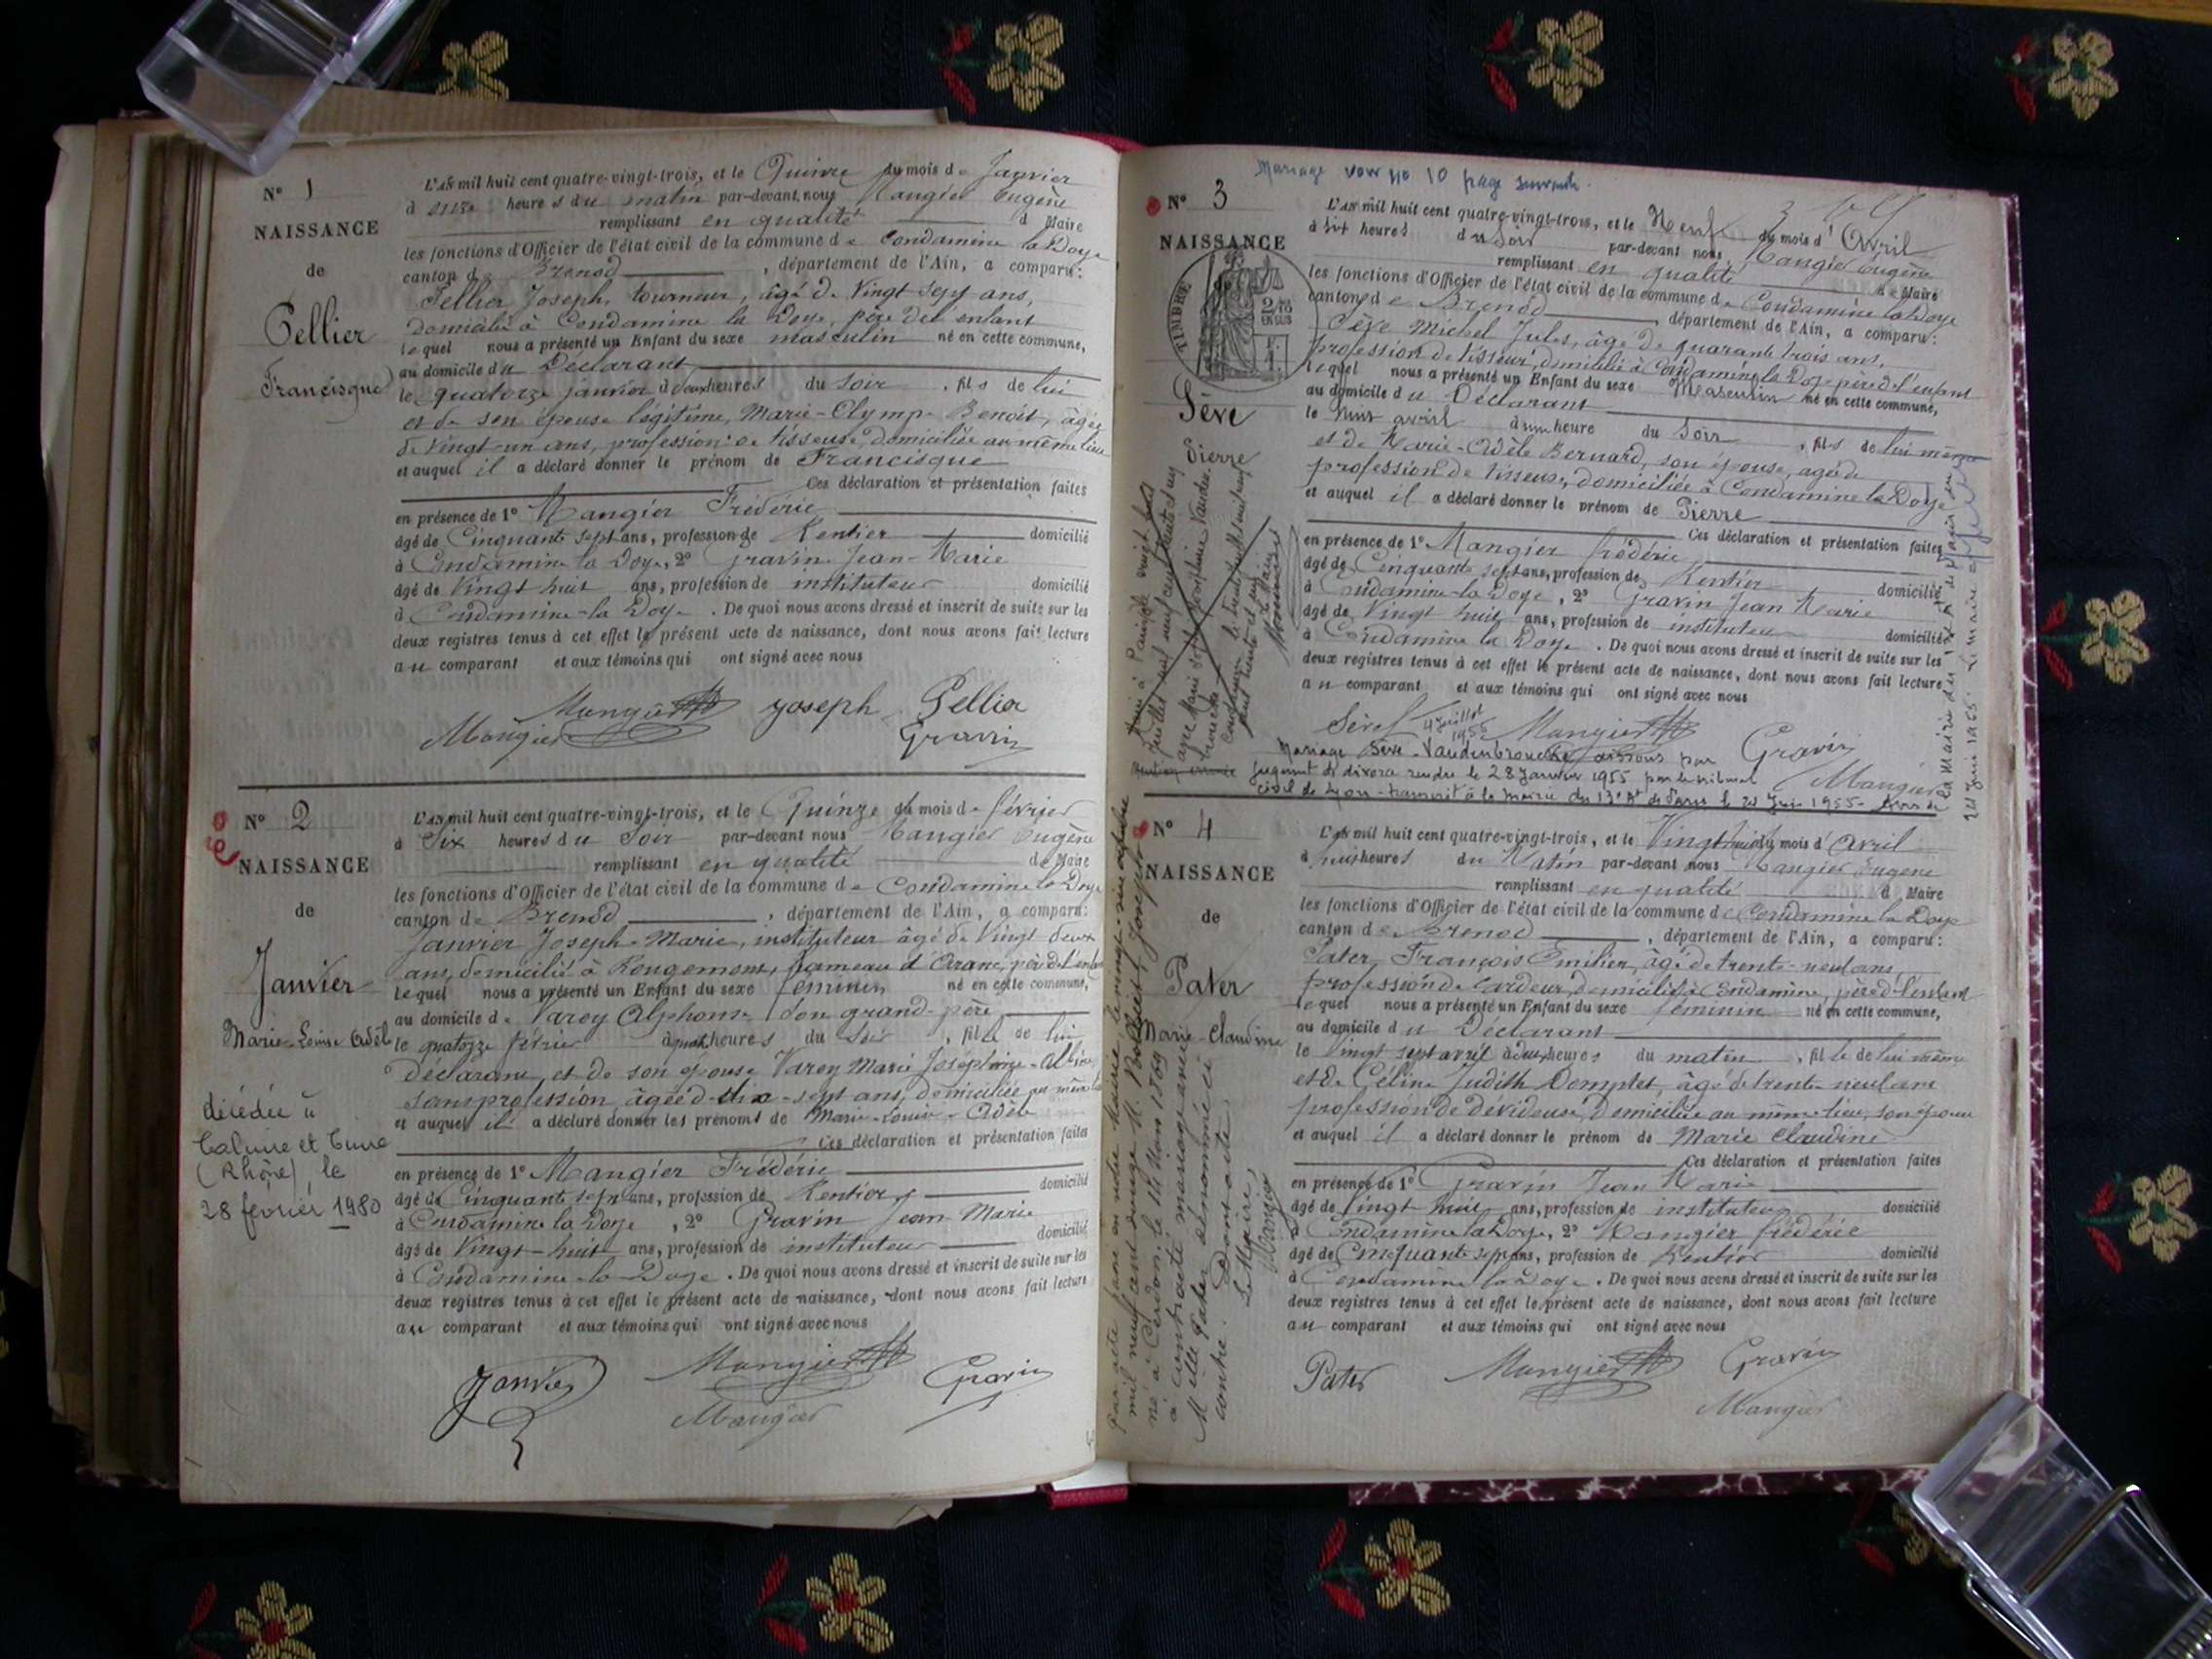 N° 1
NAISSANCE
de
Pellier
Francisque
L'AN mil huit cent quatre-vingt-trois, et le Quinze du mois de Janvier
à onze heures du matin par-devant nous Mangier Eugène
remplissant en qualité d Maire
les fonctions d'Officier de l'état civil de la commune de Condamine la Doye
canton de Brenod, département de l'Ain, a comparu:
Pellier Joseph, tourneur, âgé de Vingt sept ans,
domicilié à Condamine la Doye, père de l'enfant
lequel nous a présenté un Enfant du sexe masculin né en cette commune,
au domicile du Déclarant
le quatorze janvier à deux heures du soir, fils de lui
et de son épouse légitime, Marie-Olympe Benoit, âgée
de Vingt-un ans, profession de tisseuse, domiciliée au même lieu
et auquel il a déclaré donner le prénom de Francisque
Ces déclaration et présentation faites
en présence de 1° Mangier Frédéric
âgé de Cinquante sept ans, profession de Rentier domicilié
à Condamine la Doye, 2° Gravin Jean-Marie
âgé de Vingt huit ans, profession de instituteur domicilié
à Condamine-la Doye. De quoi nous avons dressé et inscrit de suite sur les
deux registres tenus à cet effet le présent acte de naissance, dont nous avons fait lecture
au comparant et aux témoins qui ont signé avec nous
Mangier Joseph Pellier
Mangier Gravin
N° 2
NAISSANCE
de
Janvier
Marie-Louise Adèle
décédée à
Caluire et Cuire
(Rhône), le
28 février 1980
L'AN mil huit cent quatre-vingt-trois, et le Quinze du mois de février
à Six heures du Soir par-devant nous Mangier Eugène
remplissant en qualité de Maire
les fonctions d'Officier de l'état civil de la commune de Condamine la Doye
canton de Brenod, département de l'Ain, a comparu:
Janvier Joseph-Marie, instituteur âgé de Vingt deux
ans, domicilié à Rougemont, hameau d'Aranc, père de l'enfant
lequel nous a présenté un Enfant du sexe féminin né en cette commune,
au domicile de Varey Alphonse son grand-père
le quatorze février à heures du soir, fille de lui
déclarant, et de son épouse Varey Marie Joséphine-Albine
sans profession âgée de dix-sept ans, domiciliée au même lieu
et auquel il a déclaré donner les prénoms de Marie-Louise-Adèle
Ces déclaration et présentation faites
en présence de 1° Mangier Frédéric
âgé de Cinquante sept ans, profession de Rentier domicilié
à Condamine la Doye, 2° Gravin Jean-Marie
âgé de Vingt-huit ans, profession de instituteur domicilié
à Condamine-la-Doye. De quoi nous avons dressé et inscrit de suite sur les
deux registres tenus à cet effet le présent acte de naissance, dont nous avons fait lecture
au comparant et aux témoins qui ont signé avec nous
Janvier Mangier Gravin
Mangier
Mariage voir no 10 page suivante
N° 3
NAISSANCE
de
TIMBRE
Sève
Pierre
L'AN mil huit cent quatre-vingt-trois, et le Neuf du mois d'Avril
à six heures du soir par-devant nous, Mangier Eugène
remplissant en qualité de Maire
les fonctions d'Officier de l'état civil de la commune de Condamine la Doye
canton de Brenod, département de l'Ain, a comparu:
Sève Michel Jules, âgé de quarante trois ans,
profession de tisseur, domicilié à Condamine la Doye père de l'enfant
lequel nous a présenté un Enfant du sexe Masculin né en cette commune,
au domicile du Déclarant
le huit avril à une heure du Soir, fils de lui même
et de Marie-Adèle Bernard, son épouse, agée de
profession de tisseuse, domiciliée à Condamine la Doye
et auquel il a déclaré donner le prénom de Pierre
Ces déclaration et présentation faites
en présence de 1° Mangier Frédéric
âgé de Cinquante sept ans, profession de Rentier domicilié
à Condamine-la Doye, 2° Gravin Jean Marie
âgé de Vingt huit ans, profession de instituteur domicilié
à Condamine la Doye. De quoi nous avons dressé et inscrit de suite sur les
deux registres tenus à cet effet le présent acte de naissance, dont nous avons fait lecture
au comparant et aux témoins qui ont signé avec nous
Sève Mangier Gravin
Mangier
4 Juillet
1955
Mariage Sève-Vandenbrouche dissous par
jugement de divorce rendu le 28 Janvier 1955 par le tribunal
civil de Lyon - transcrit à la mairie du 13e Art de Paris le 21 Juin 1955 - Avis de
la Mairie du
21 Juin 1955. Le maire
N° 4
NAISSANCE
de
Pater
Marie-Claudine
L'AN mil huit cent quatre-vingt-trois, et le Vingt huit du mois d'Avril
à heures du Matin par-devant nous Mangier Eugène
remplissant en qualité d Maire
les fonctions d'Officier de l'état civil de la commune de Condamine la Doye
canton de Brenod, département de l'Ain, a comparu:
Pater François Emilien, âgé de trente-neuf ans,
profession de cardeur, domicilié à Condamine, père de l'enfant
lequel nous a présenté un Enfant du sexe féminin né en cette commune,
au domicile du Déclarant
le Vingt sept avril à deux heures du matin, fille de lui même
et de Céline Judith Domplet, âgée de trente-neuf ans
profession de dévideuse, domiciliée au même lieu, son épouse
et auquel il a déclaré donner le prénom de Marie Claudine
Ces déclaration et présentation faites
en présence de 1° Gravin Jean Marie
âgé de Vingt huit ans, profession de instituteur domicilié
à Condamine la Doye, 2° Mangier Frédéric
âgé de Cinquante sept ans, profession de Rentier domicilié
à Condamine la Doye. De quoi nous avons dressé et inscrit de suite sur les
deux registres tenus à cet effet le présent acte de naissance, dont nous avons fait lecture
au comparant et aux témoins qui ont signé avec nous
Pater Mangier Gravin
Mangier
Par acte passé en notre Mairie le vingt-cinq octobre
mil neuf cent onze M. Joseph
né à Cerdon, le 14 1869
a contracté mariage avec
Melle Pater dénommée ci
contre. Dont acte.
Le Maire,
Mangier